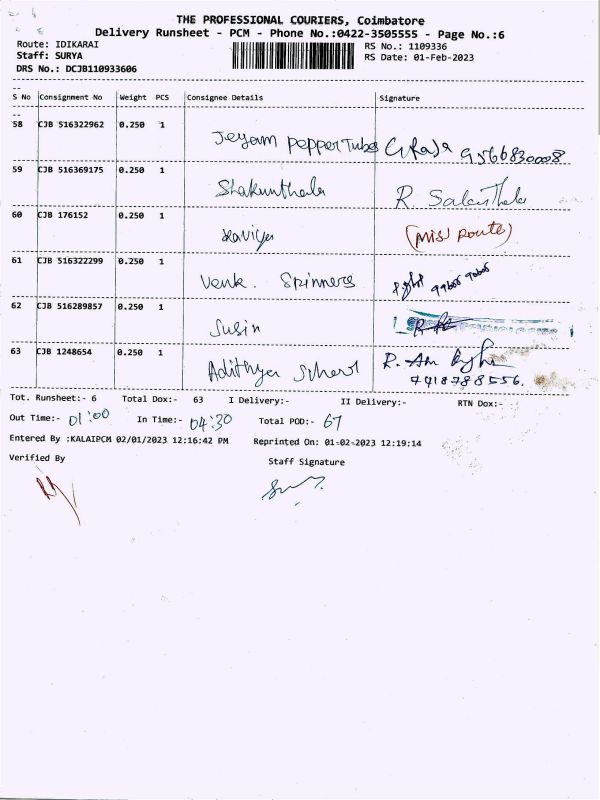 THE PROFESSIONAL COURIERS, Coimbatore
Delivery Runsheet - PCM - Phone No.:0422-3505555 - Page No.:6
Route: IDIKARAI
RS No.: 1109336
Staff: SURYA
RS Date: 01-Feb-2023
DRS No.: DCJB110933606
S No Consignment No Weight PCS Consignee Details Signature
58 CJB 516322962 0.250 1 Jeyam Pepper Tubes G Raja 9566830008
59 CJB 516369175 0.250 1 Shakunthala R.
60 CJB 176152 0.250 1 (Miss route)
61 CJB 516322299 0.250 1 Venk. Spinners
62 CJB 516289857 0.250 1 Susin
63 CJB 1248654 0.250 1 Adithya School R.
7418788556.
Tot. Runsheet:- 6 Total Dox:- 63 I Delivery:- II Delivery:- RTN Dox:-
Out Time:- 01:00 In Time:- 04:30 Total POD:- 67
Entered By :KALAIPCM 02/01/2023 12:16:42 PM Reprinted On: 01-02-2023 12:19:14
Verified By Staff Signature